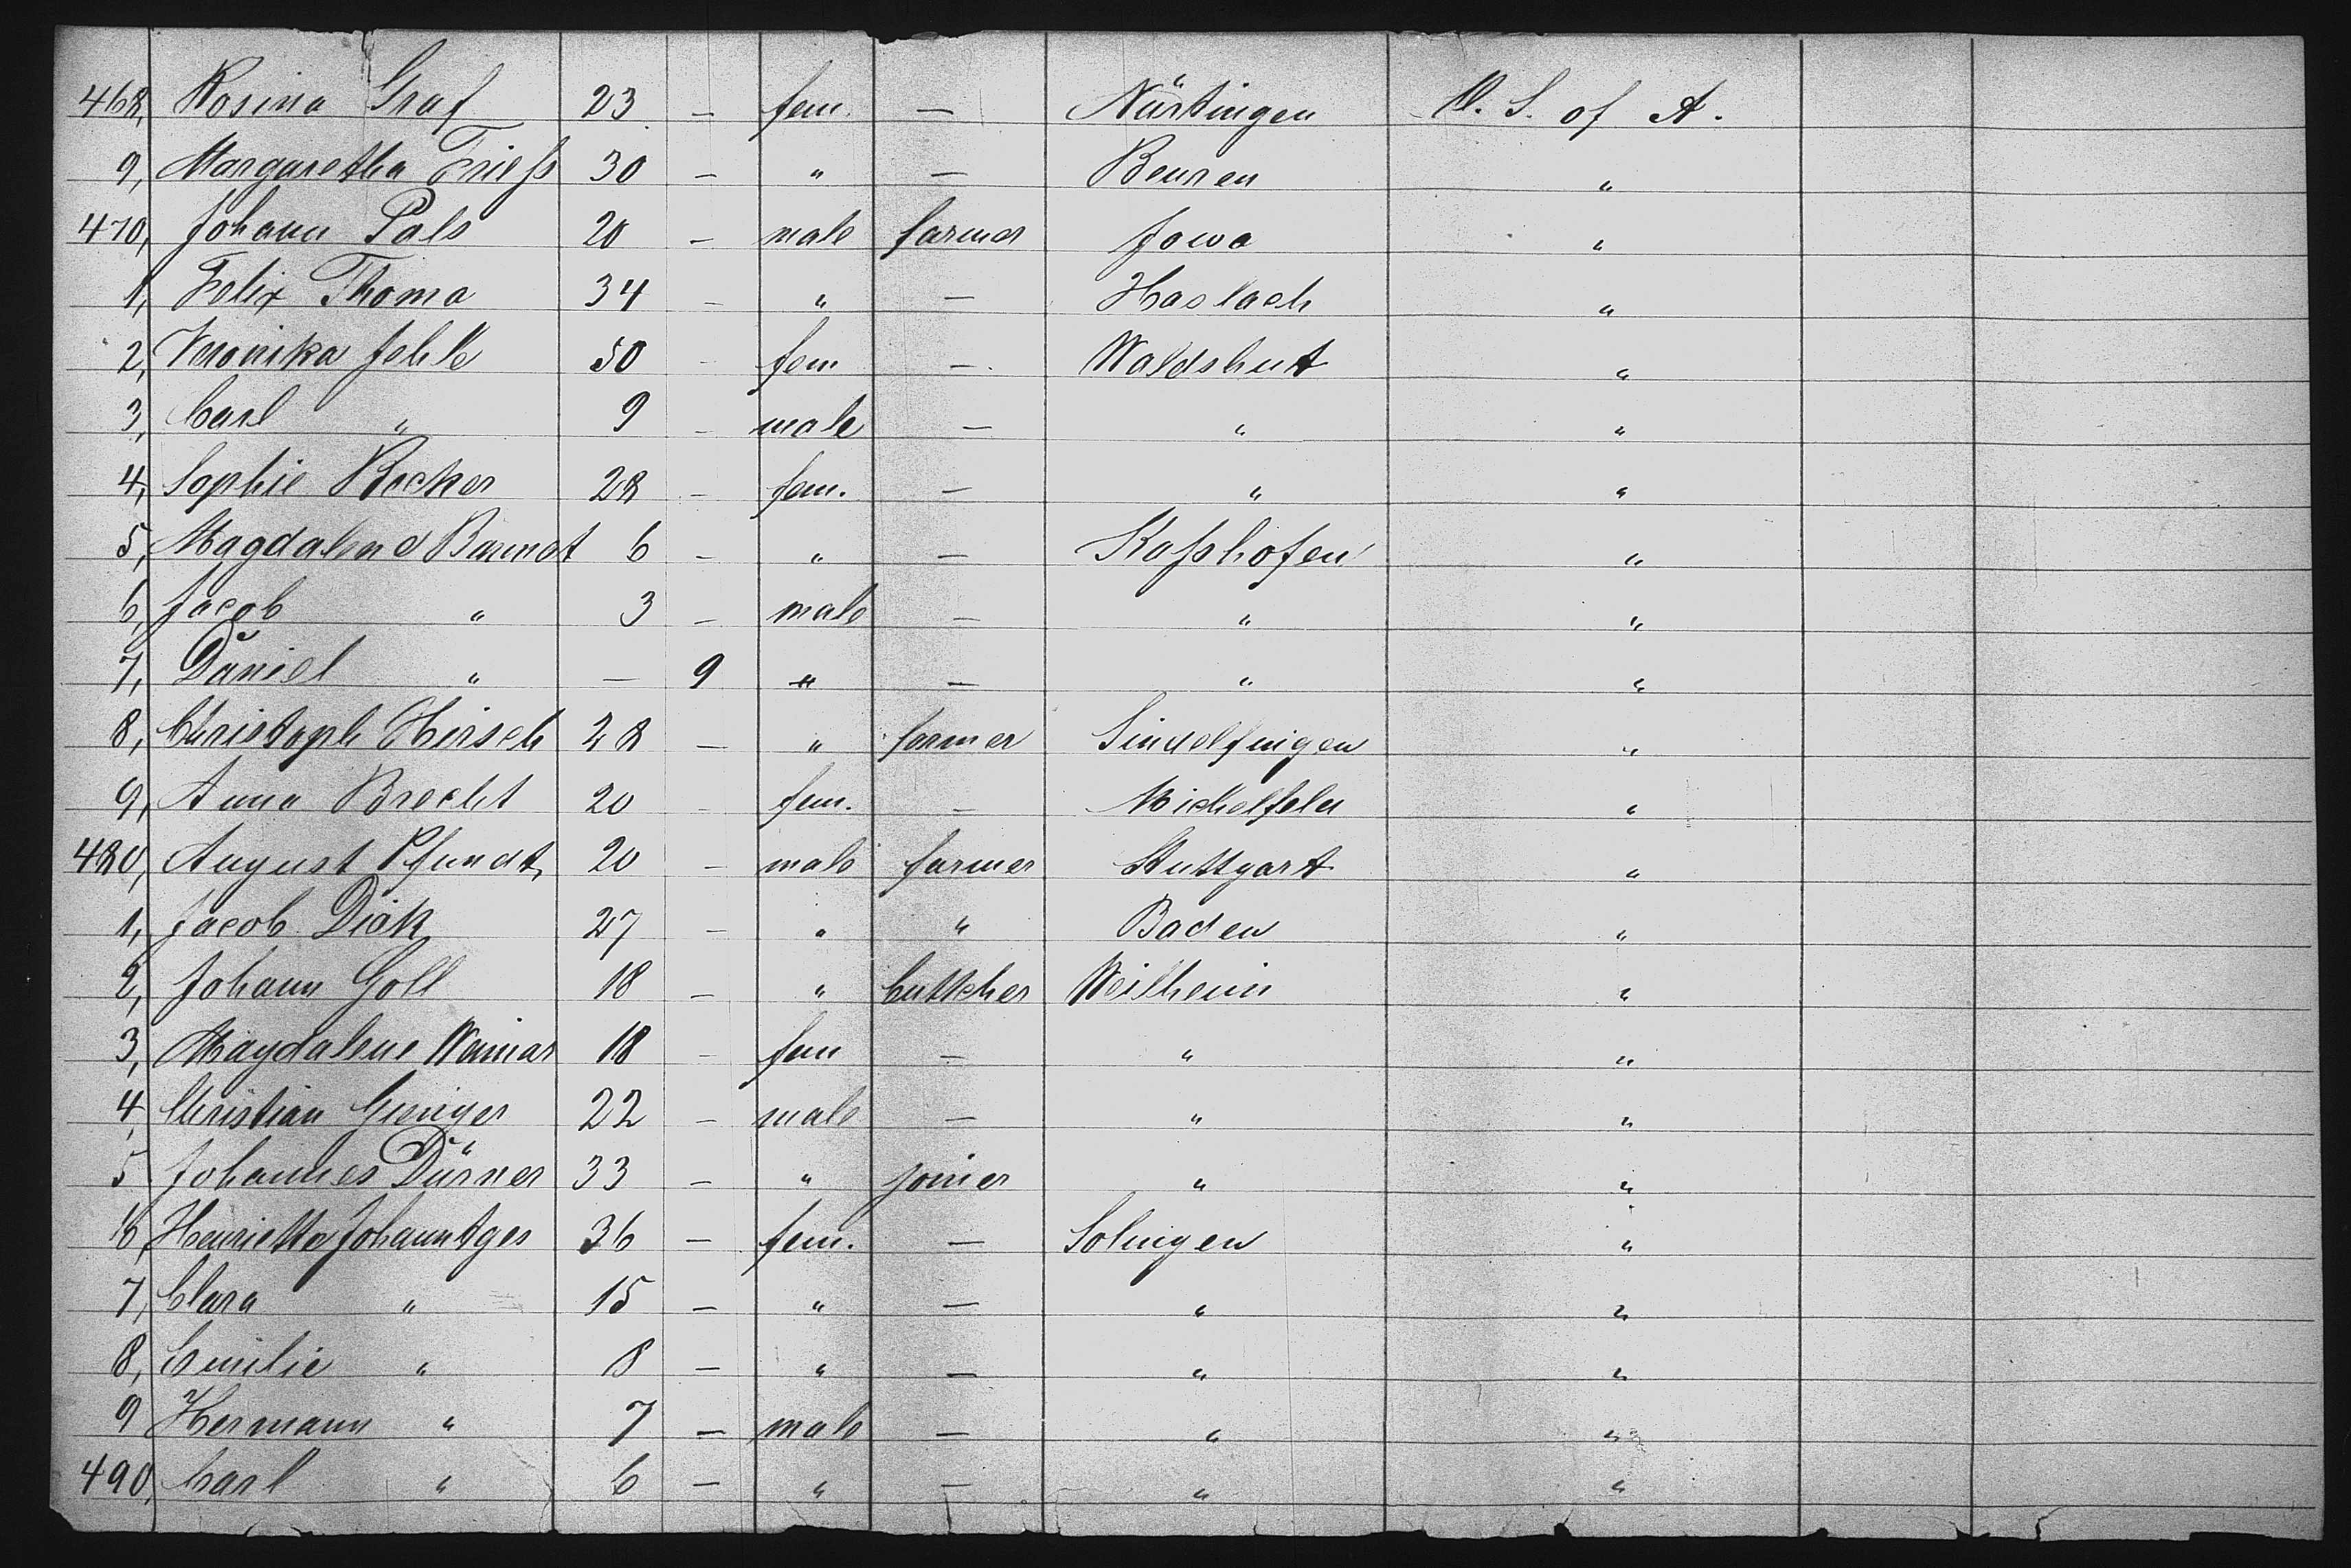 468, Rosina Graf 23 — fem. — Nürtingen U. S. of A.
9, Margaretha Frieß 30 — " — Beuren "
470, Johann Pals 20 — male farmer Jowa "
1, Felix Thoma 34 — " — Haslach "
2, Veronika Jehle 50 — fem — Waldshut "
3, Carl " 9 — male — " "
4, Sophie Becker 28 — fem. — " "
5, Magdalena 6 — " — Roßhofen "
6, Jacob " 3 — male — " "
7, Daniel " — 9 " — " "
8, Christoph Hirsch 28 — " farmer Sindelfingen "
9, Anna Brecht 20 — fem. — Michelfeld "
480, August Pfundt 20 — male farmer Stuttgart "
1, Jacob Dick 27 — " " Baden "
2, Johann Goll 18 — " buttcher Weilheim "
3, Magdalene Weimar 18 — fem — " "
4, Christian 22 — male — " "
5 Johannes Dürner 33 — " joiner " "
6, Henriette Johanntges 36 — fem. — Solingen "
7, Clara " 15 — " — " "
8, Emilie " 8 — " — " "
9 Hermann " 7 — male — " "
490, Carl " 6 — " — " "